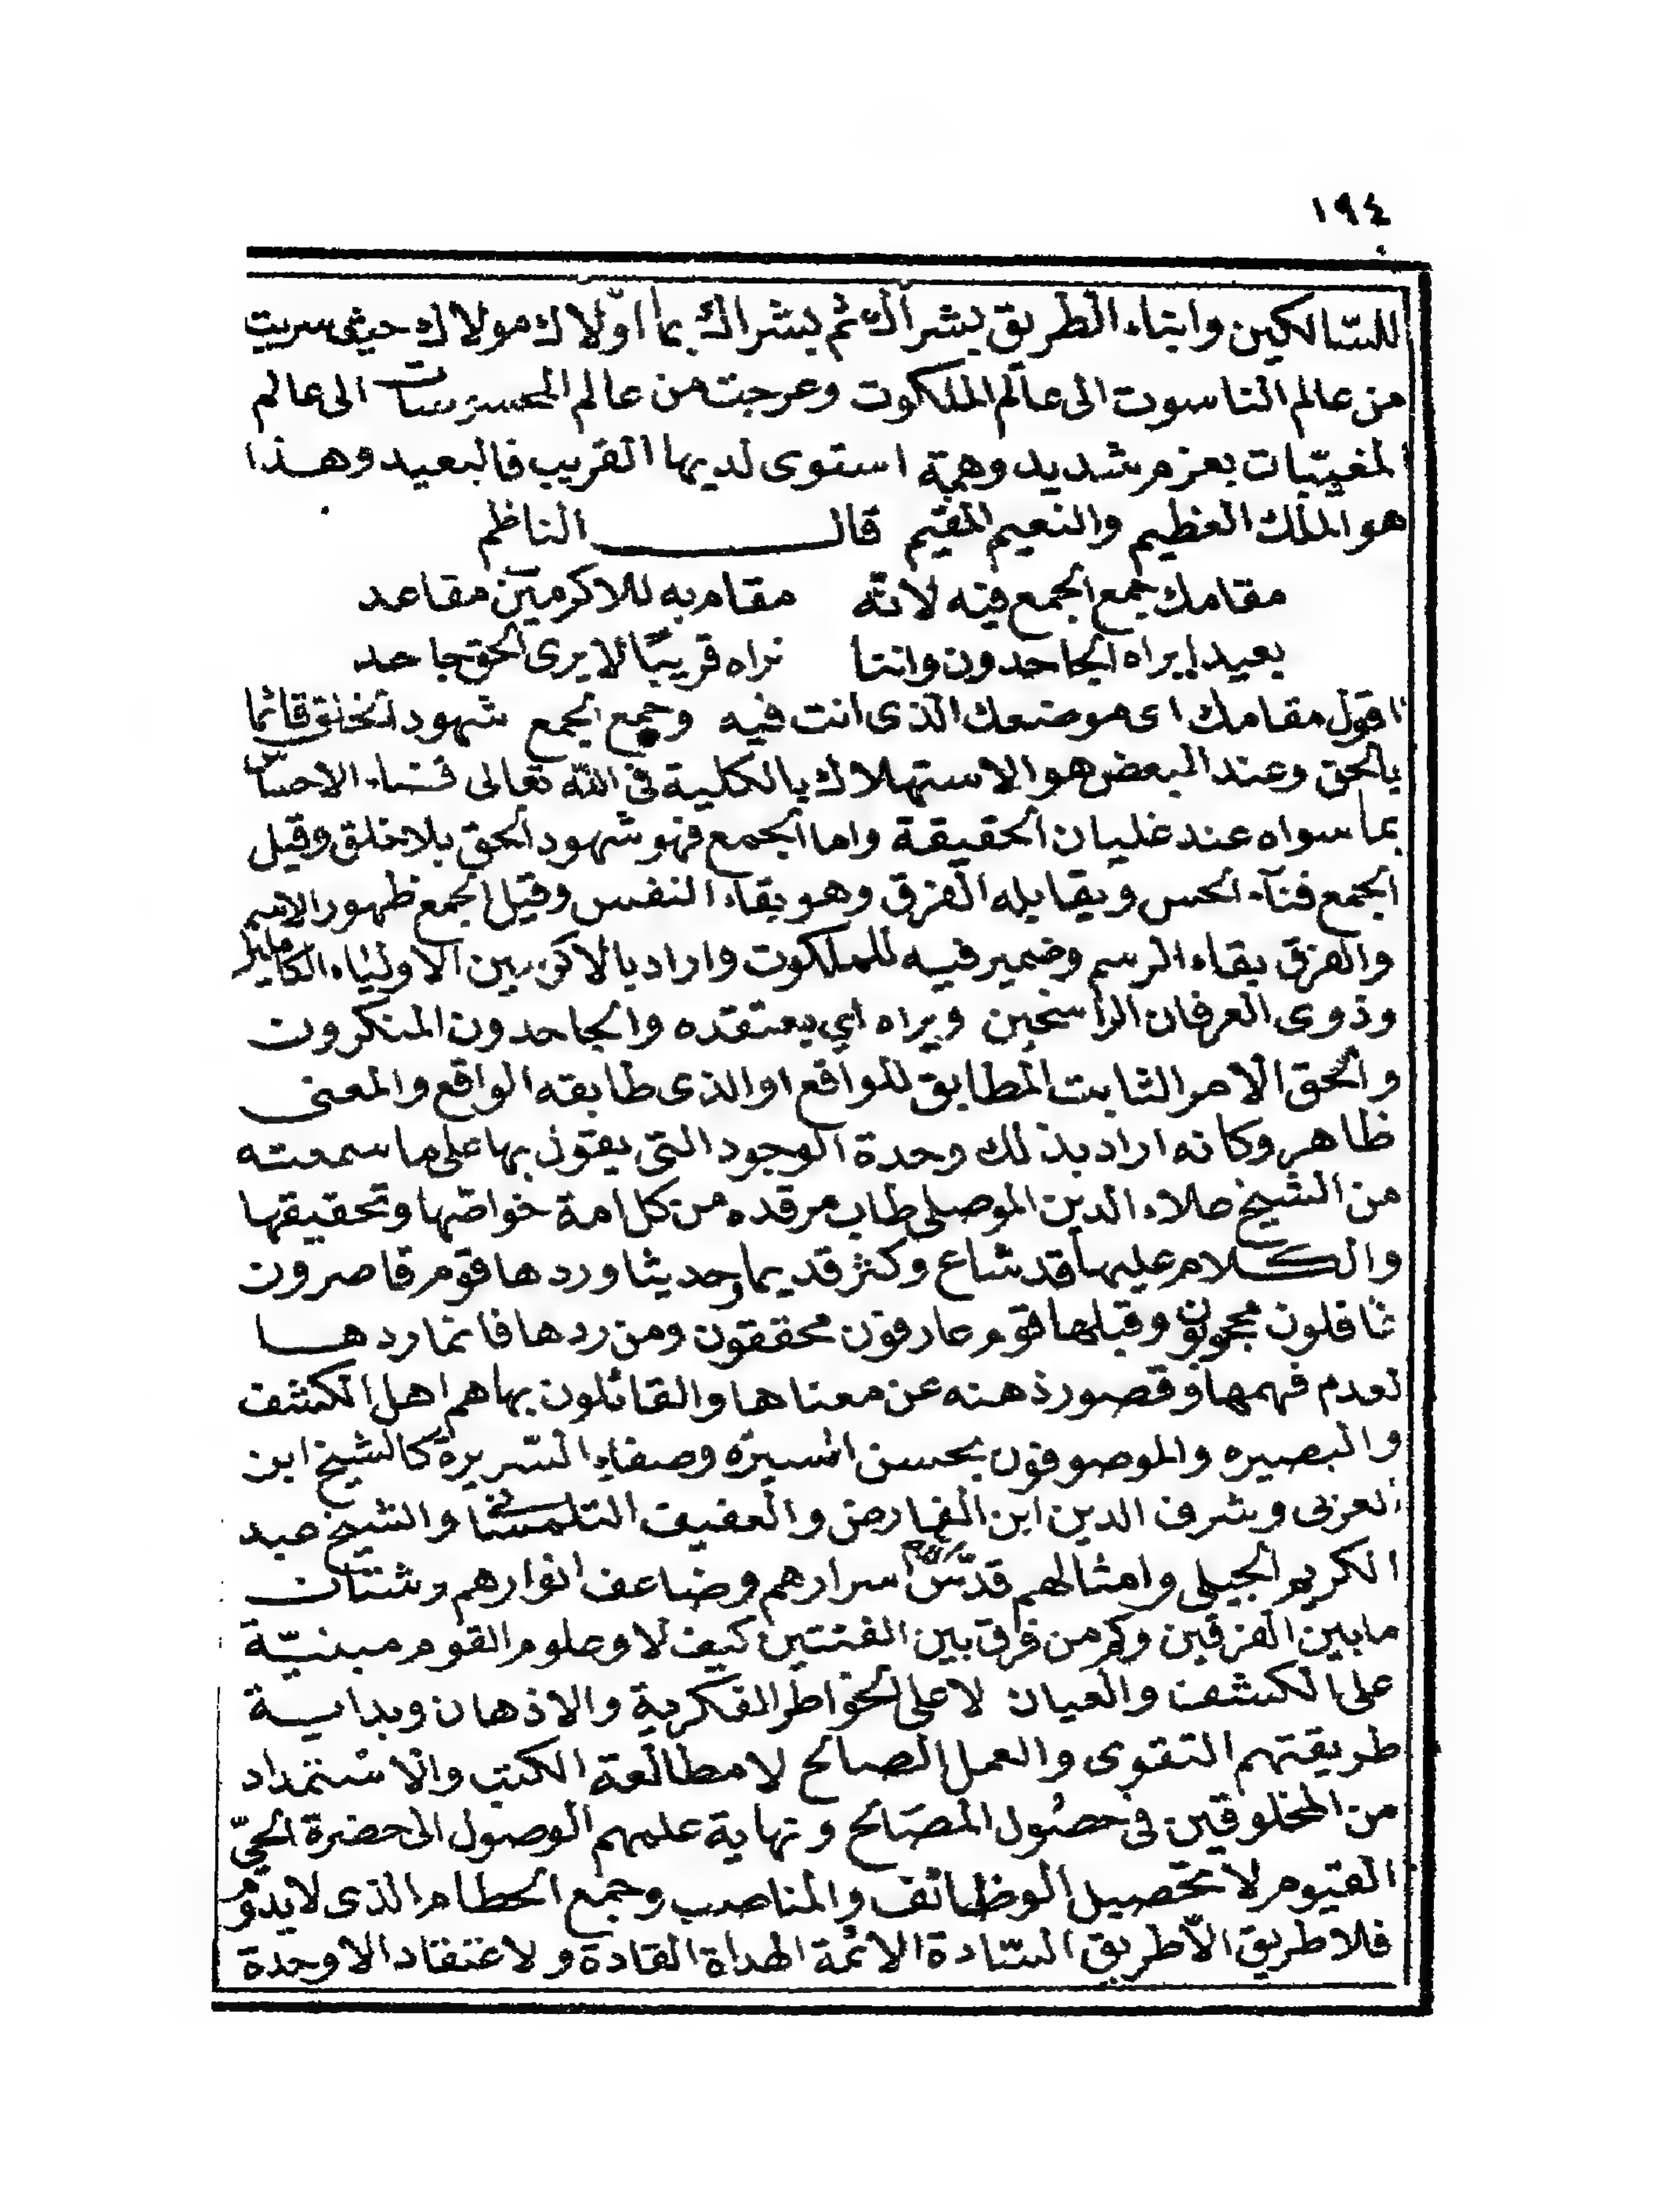 ١٩٤
للسّالكين وابناء الطريق بشراك ثم بشراك بما اوّلاك مولاك حيث سريت
من عالم الناسوت الى عالم الملكوت وعرجت من عالم المحسوسات الى عالم
المغيّبات بعزم شديد وهمة استوى لديها القريب فالبعيد وهذا
هو الملك العظيم والنعيم المقيم قال الناظم
مقامك جمع الجمع فيه لانّه مقام به للاكرمين مقاعد
بعيدا يراه الجاحدون واننا نراه قريبًا لا يرى الحق جاحد
اقول مقامك اى موضعك الذى انت فيه وجمع الجمع شهود الخلق قائما
بالحق وعند البعض هو الاستهلاك بالكلية فى الله تعالى فناء الاحساس
بما سواه عند غليان الحقيقة واما الجمع فهو شهود الحق بلا خلق وقيل
الجمع فنآء الحس ويقابله الفرق وهو بقاء النفس وقيل الجمع ظهور الاسم
والفرق بقاء الرسم وضمير فيه للملكوت واراد بالاكرمين الاولياء الكاملين
وذوى العرفان الراسخين ويراه اي يعتقده والجاحدون المنكرون
والحق الامر الثابت المطابق للواقع او الذى طابقه الواقع والمعنى
ظاهر وكانه اراد بذلك وحدة الوجود التى يقول بها على ما سمعته
من الشيخ علاء الدين الموصلى طاب مرقده من كل امة خواصّها وتحقيقها
والكلام عليها قد شاع وكثر قديما وحديثا وردها قوم قاصرون
غافلون محجوبون وقبلها قوم عارفون محققون ومن ردها فانما ردها
لعدم فهمها وقصور ذهنه عن معناها والقائلون بها هم اهل الكشف
والبصيره والموصوفون بحسن السيرة وصفاء السّريرة كالشيخ ابن
العربى وشرف الدين ابن الفارض والعفيف التلمسانى والشيخ عبد
الكريم الجيلى وامثالهم قدّس الله اسرارهم وضاعف انوارهم وشتان
ما بين الفرقين وكم من فرق بين الفئتين كيف لا وعلوم القوم مبنيّة
على الكشف والعيان لا على الخواطر الفكرية والاذهان وبداية
طريقتهم التقوى والعمل الصالح لا مطالعة الكتب والاستمداد
من المخلوقين فى حصول المصَالح ونهاية علمهم الوصول الى حضرة الحىّ
القيوم لا تحصيل الوظائف والمناصب وجمع الحطام الذى لا يدوم
فلا طريق الاّ طريق السّادة الائمة الهداة القادة ولا عتقاد الا وحدة